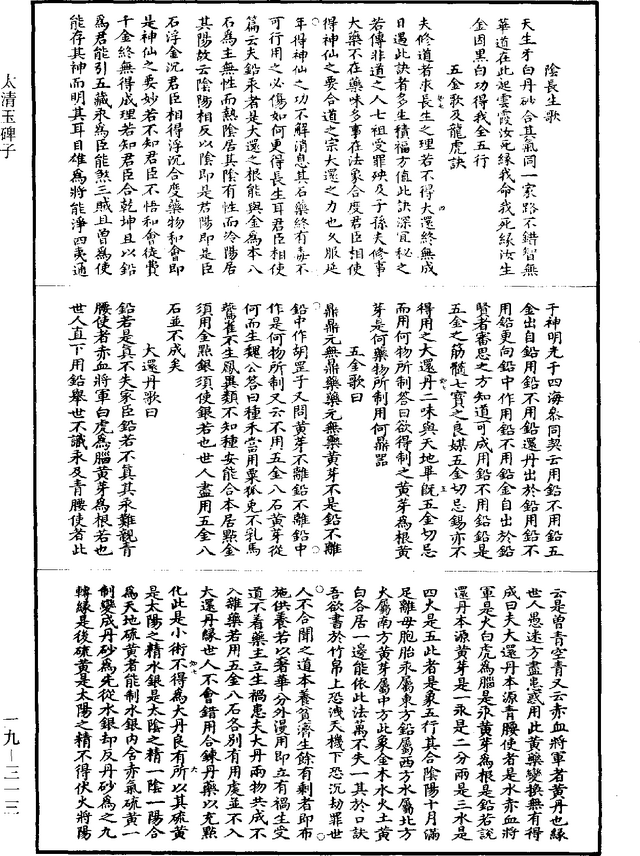 陰長生歌
天生牙白丹砂合其氣同一家路不錯智無
華道在此起雲霞汝死緣我命我死緣汝生
金因黑白功得我金五行
五金歌及龍虎訣
夫修道者求長生之理若不得大還終無成
日遇此訣者多生積福方值此訣深宜秘之
若傳非道之人七祖受罪殃及子孫夫修事
大藥不在藥味多事在法象合度君臣相使
得神仙之要合道之宗大還之力也久服延
年得神仙之功不解消息其石藥終有毒不
可行用之必傷如何更得長生耳君臣相使
篇云夫鉛汞者是大還之根能與金為本八
石為主無性而熱陰居其陰有性而冷陽居
其陽故云陰陽相反以陰即是君陽即是臣
石浮金沉君臣相得浮沉合度藥物和會即
是神仙之要妙若不知君臣不悟和會徒費
千金終無得成理若知君臣合乾坤且以鉛
為君能引五藏汞為臣能煞三賊且曾為使
能存其神而明其耳目雄為將能淨四夷通
于神明光于四海叅同契云用鉛不用鉛五
金出自鉛用鉛不用鉛還丹出於鉛用鉛不
用鉛更向鉛中作用鉛不用鉛金自出於鉛
賢者審思之方知道可成用鉛不用鉛鉛是
五金之筋髓七寶之良媒五金切忌錫亦不
得用之大還丹二味與天地畢既五金切忌
而用何物所制答曰欲得制之黃芽為根黃
芽是何藥物所制用何鼎器
五金歌曰
鼎鼎元無鼎藥藥元無藥黃芽不是鉛不離
鉛中作胡罡子又問黃芽不離鉛不離鉛中
作是何物所制又云不用五金八石黃芽從
何而生魏公答曰種禾當用粟狐兔不乳馬
鷰雀不生鳳異類不知種安能合本居點金
須用金點銀須使銀若也世人盡用五金八
石並不成矣
大還丹歌曰
鉛若是真不失家臣鉛若不真其汞難觀青
腰使者赤血將軍白虎為腦黃芽為根若也
世人直下用鉛舉世不識汞及青腰使者此
云是曾青空青又云赤血將軍者黃丹也緣
世人愚迷方盡患惑用此黃藥變換無有得
成曰夫大還丹本源青腰使者是水赤血將
軍是火白虎為腦是汞黃芽為根是鉛若說
還丹本源黃芽是一汞是二分兩是三水是
四火是五此者是象五行其合陰陽十月滿
足離母胞胎汞屬東方鉛屬西方水屬北方
火屬南方黃芽屬中方此象金木水火土黃
白各居一邊能依此法萬不失一其於口訣
吾欲書於竹帛上恐洩天機下恐沉劫罪世
人不合聞之道本養貧濟生餘有剩者即布
施供養若以奢華分外漫用即立有禍生受
道不看藥主立生禍患夫大丹兩物共成不
入雜藥若用五金八石各別有用處並不入
大還丹緣世人不會錯用合鍊丹藥以充點
化此是小術不得為大丹良有所以其硫黃
是太陽之精水銀是太陰之精一陰一陽合
為天地硫黃者能制水銀內含赤氣硫黃一
制變成丹砂為先從水銀却反丹砂為之九
轉緣是後硫黃是太陽之精不得伏火將陽
太清玉碑子
一九—三一三